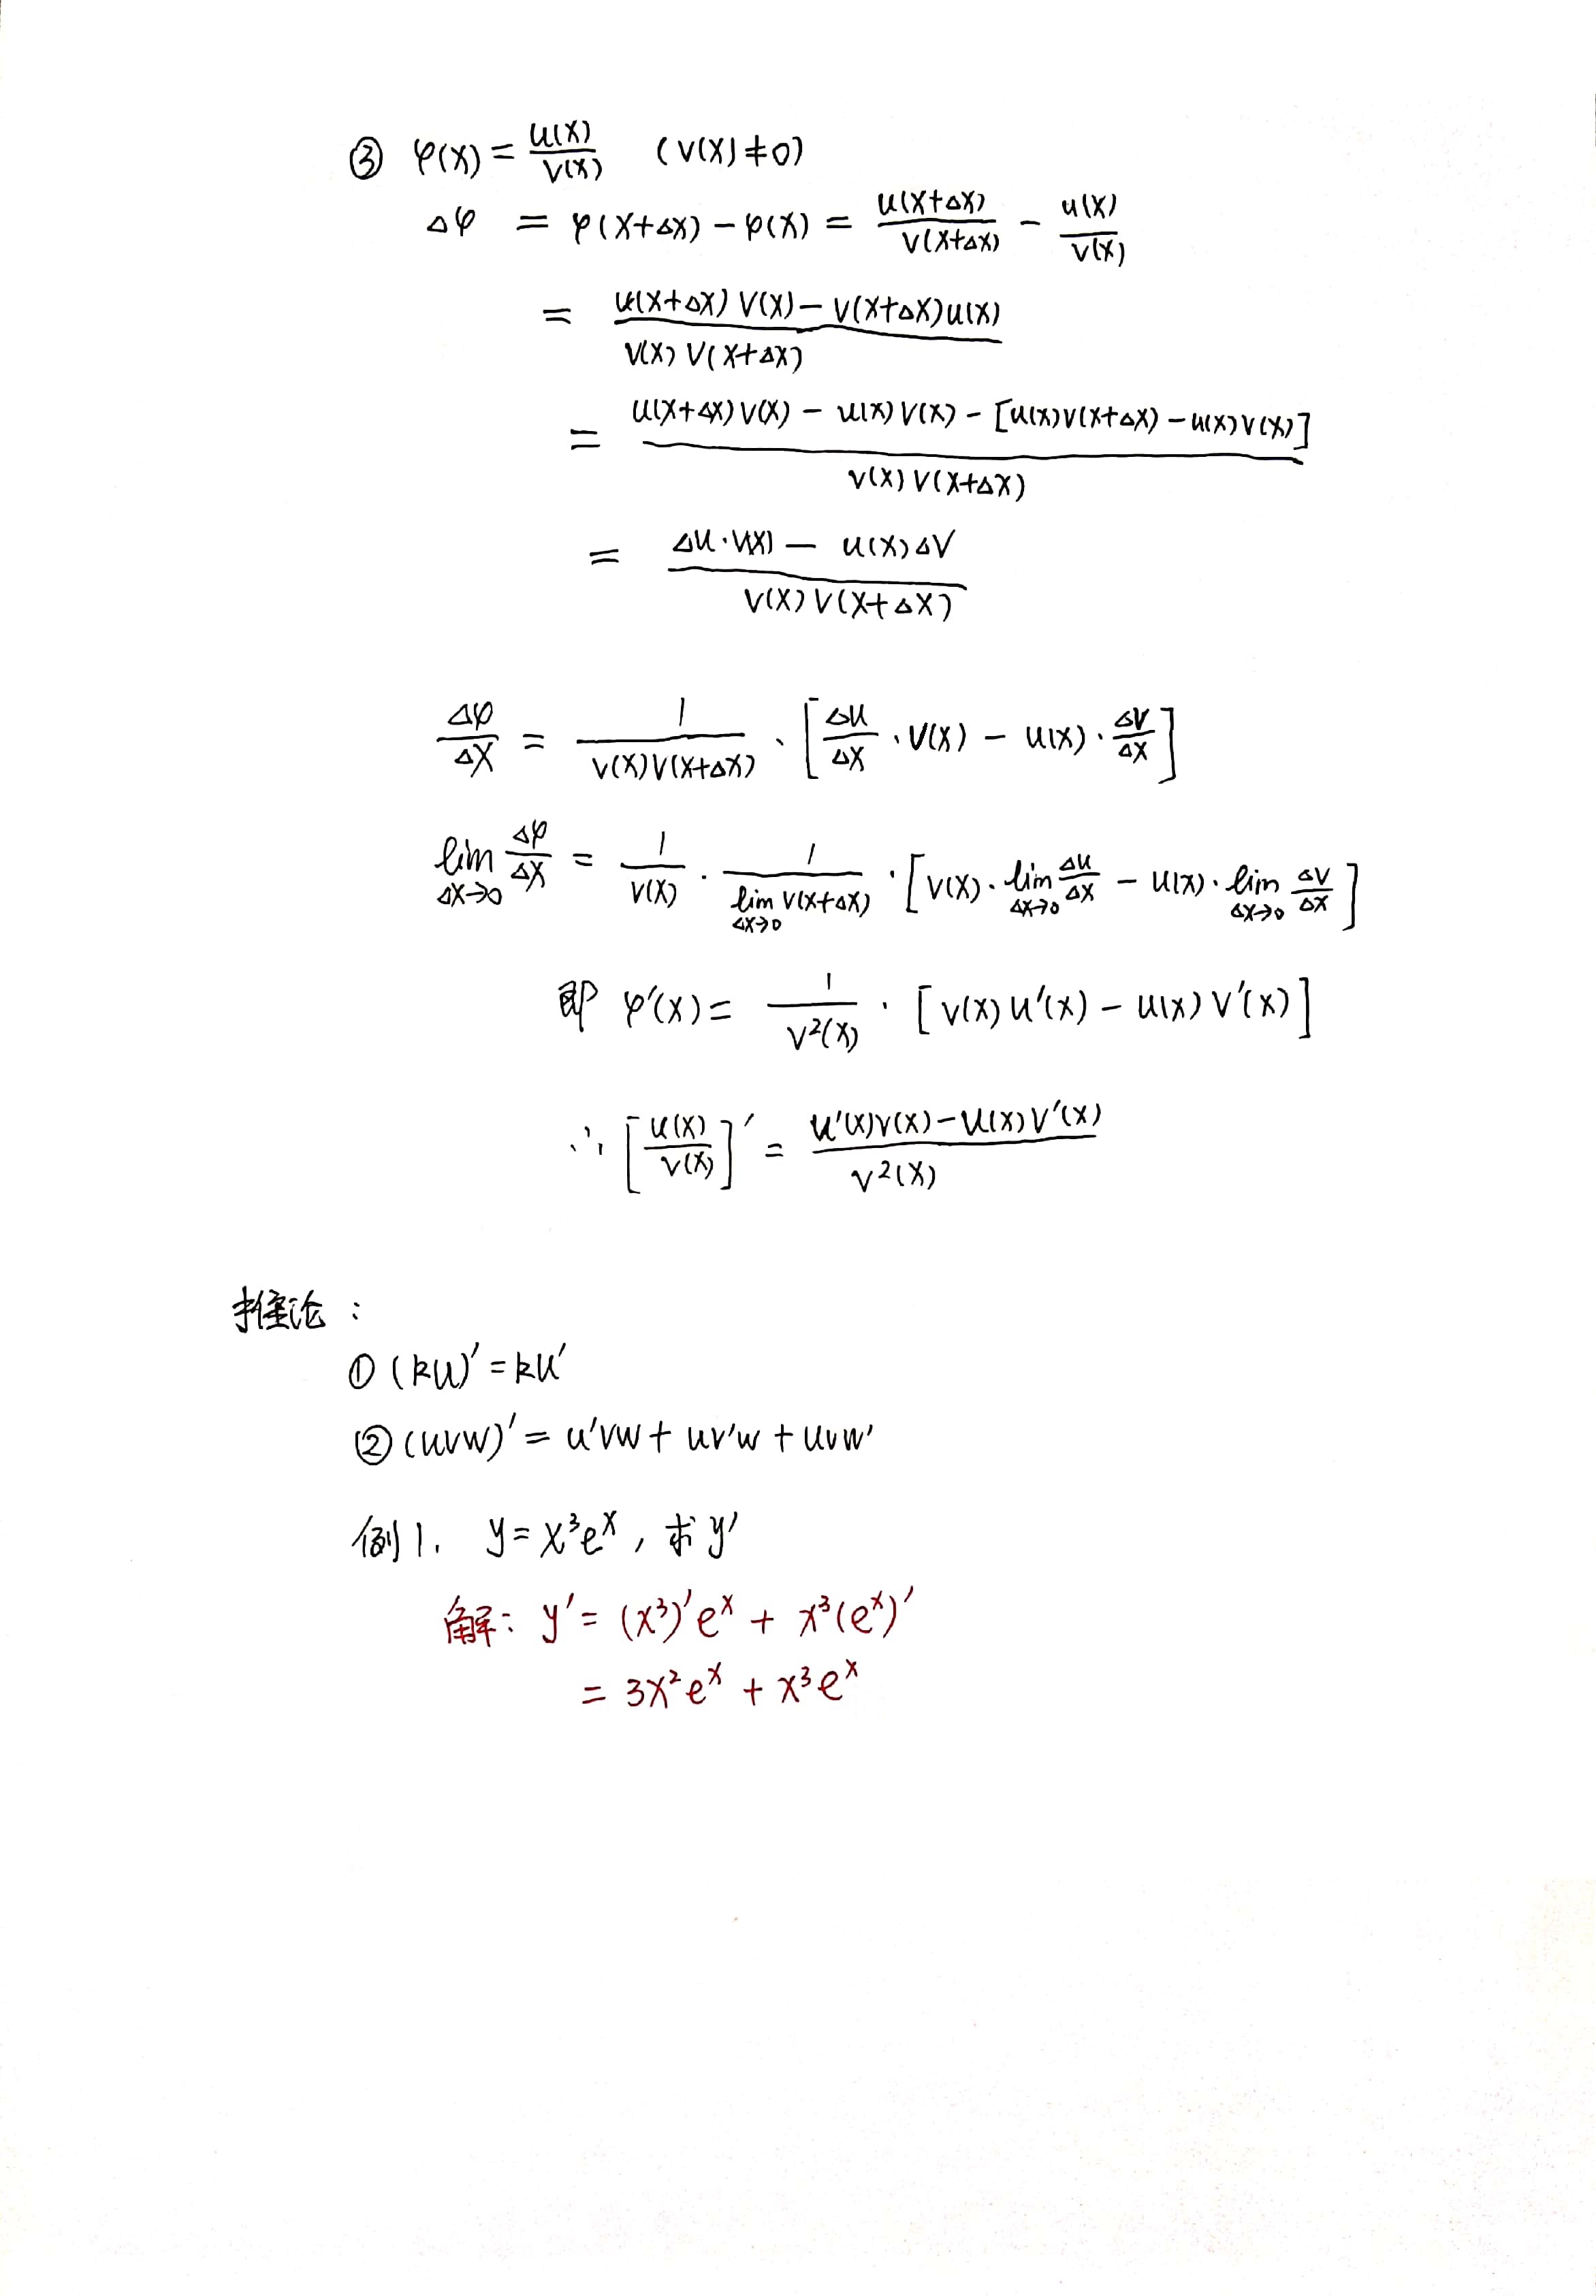 ③ φ(x) = u(x)/v(x) (v(x)≠0)
Δφ = φ(x+Δx) − φ(x) = u(x+Δx)/v(x+Δx) − u(x)/v(x)
= [u(x+Δx)v(x) − v(x+Δx)u(x)] / [v(x)v(x+Δx)]
= {u(x+Δx)v(x) − u(x)v(x) − [u(x)v(x+Δx) − u(x)v(x)]} / [v(x)v(x+Δx)]
= [Δu·v(x) − u(x)Δv] / [v(x)v(x+Δx)]
Δφ/Δx = 1/[v(x)v(x+Δx)] · [Δu/Δx · v(x) − u(x) · Δv/Δx]
lim_{Δx→0} Δφ/Δx = 1/v(x) · 1/[lim_{Δx→0} v(x+Δx)] · [v(x)·lim_{Δx→0} Δu/Δx − u(x)·lim_{Δx→0} Δv/Δx]
即 φ′(x) = 1/v²(x) · [v(x)u′(x) − u(x)v′(x)]
∴ [u(x)/v(x)]′ = [u′(x)v(x) − u(x)v′(x)] / v²(x)
推论：
① (ku)′ = ku′
② (uvw)′ = u′vw + uv′w + uvw′
例1. y = x³eˣ, 求y′
解: y′ = (x³)′eˣ + x³(eˣ)′
= 3x²eˣ + x³eˣ